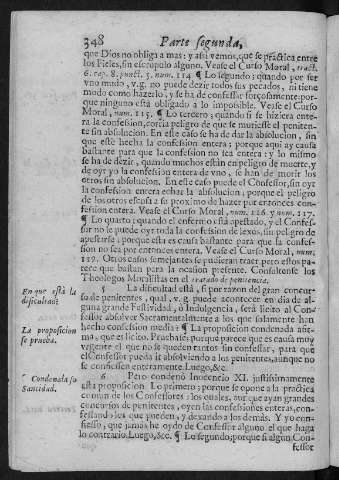 348 Parte segunda,
que Dios no obliga a mas: y assi vemos, que se practica entre
los Fieles, sin escrupulo alguno. Vease el Curso Moral, tract.
6. cap. 8. punct. 5. num. 114 ¶ Lo segundo; quando por ser
vno mudo, v.g. no puede dezir todos sus pecados, ni tiene
modo como hazerlo, y se ha de confessar forçosamente, por-
que ninguno està obligado a lo impossible. Vease el Curso
Moral, num. 115. ¶ Lo tercero; quando si se hiziera ente-
ra la confession, corria peligro de que se muriesse el peniten-
te sin absolucion. En este caso se ha de dar la absolucion, sin
que este hecha la confession entera; porque aqui ay causa
bastante para que la confession no sea entera: y lo mismo
se ha de dezir, quando muchos estàn en peligro de muerte, y
de oyr yo la confession entera de vno, se han de morir los
otros sin absolucion. En este caso puede el Confessor, sin oyr
la confession entera echar la absolucion; porque el peligro
de los otros escusa a su proximo de hazer por entonces con-
fession entera. Vease el Curso Moral, num. 116. y num. 117.
¶ Lo quarto; quando el enfermo està apestado, y el Confes-
sor no le puede oyr toda la confession de lexos, sin peligro de
apestarse; porque esta es causa bastante para que la confes-
sion no sea por entonces entera. Vease el Curso Moral, num.
119. Otros casos semejantes se pudieran traer, pero estos pa-
rece que bastan para la ocasion presente. Consultense los
Theologos Moralistas en el tratado de penitencia.
En que està la
dificultad?
5 La dificultad està, si por razon del gran concur-
so de penitentes, qual, v.g. puede acontecer en dia de al-
guna grande Festividad, ò Indulgencia, serà licito al Con-
fessor absolver Sacramentalmente a los que solamente han
hecho confession media? ¶ La proposicion condenada afir-
La proposicion
se prueba.
ma, que es licito. Pruebase, porque parece que es causa muy
vrgente el que no se queden tantos sin confessar, para que
el Confessor pueda ir absolviendo a los penitentes, aunque no
se confiessen enteramente. Luego, &c.
Condenala su
Santidad.
6 Pero condenò Inocencio XI. justissimamente
esta proposicion. Lo primero; porque se opone a la practica
comun de los Confessores: los quales, aunque ayan grandes
concursos de penitentes, oyen las confessiones enteras, con-
fessando los que pueden, y dexando a los demàs. Y yo con-
fiesso, que jamàs he oydo de Confessor alguno el que haga
lo contrario. Luego, &c. ¶ Lo segundo; porque si algun Con-
fessor